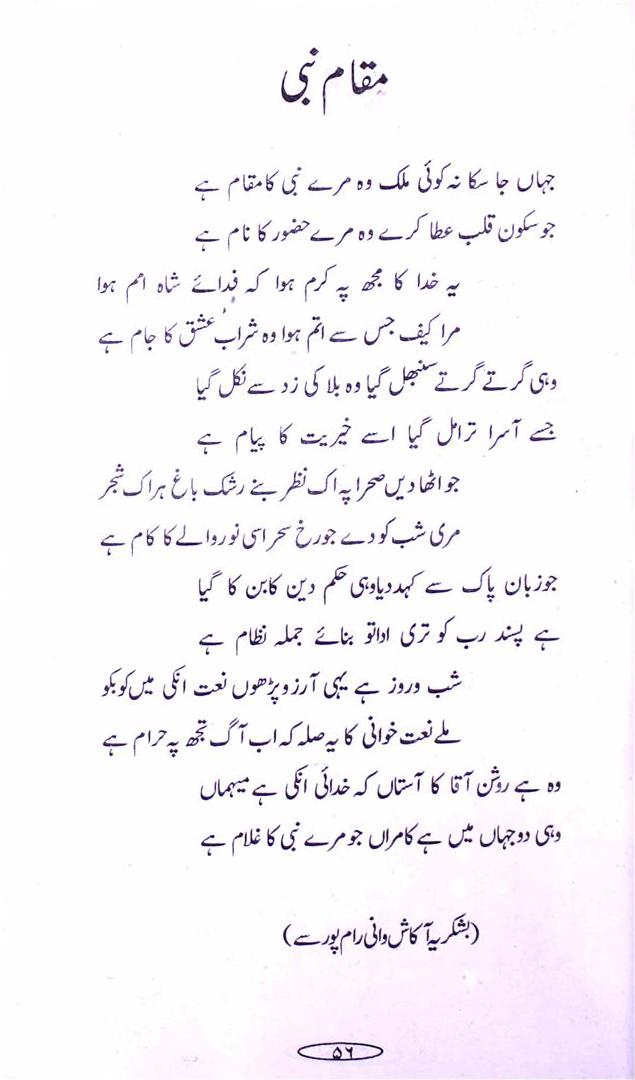 مقام نبی
جہاں جا سکا نہ کوئی ملک وہ مرے نبی کا مقام ہے
جو سکون قلب عطا کرے وہ مرے حضور کا نام ہے
یہ خدا کا مجھ پہ کرم ہوا کہ فدائے شاہ امم ہوا
مرا کیف جس سے اتم ہوا وہ شراب عشق کا جام ہے
وہی گرتے گرتے سنبھل گیا وہ بلا کی زد سے نکل گیا
جسے آسرا ترا مل گیا اسے خیریت کا پیام ہے
جو اٹھا دیں صحرا پہ اک نظر بنے رشک باغ ہر اک شجر
مری شب کو دے جو رخ سحر اسی نور والے کا کام ہے
جو زبان پاک سے کہہ دیا وہی حکم دین کا بن کا گیا
ہے پسند رب کو تری ادا تو بنائے جملہ نظام ہے
شب و روز ہے یہی آرزو پڑھوں نعت انکی میں کو بکو
ملے نعت خوانی کا یہ صلہ کہ اب آگ تجھ پہ حرام ہے
وہ ہے روشن آقا کا آستاں کہ خدائی انکی ہے میہماں
وہی دو جہاں میں ہے کامراں جو مرے نبی کا غلام ہے
(بشکریہ آکاش وانی رام پور سے)
۵۶